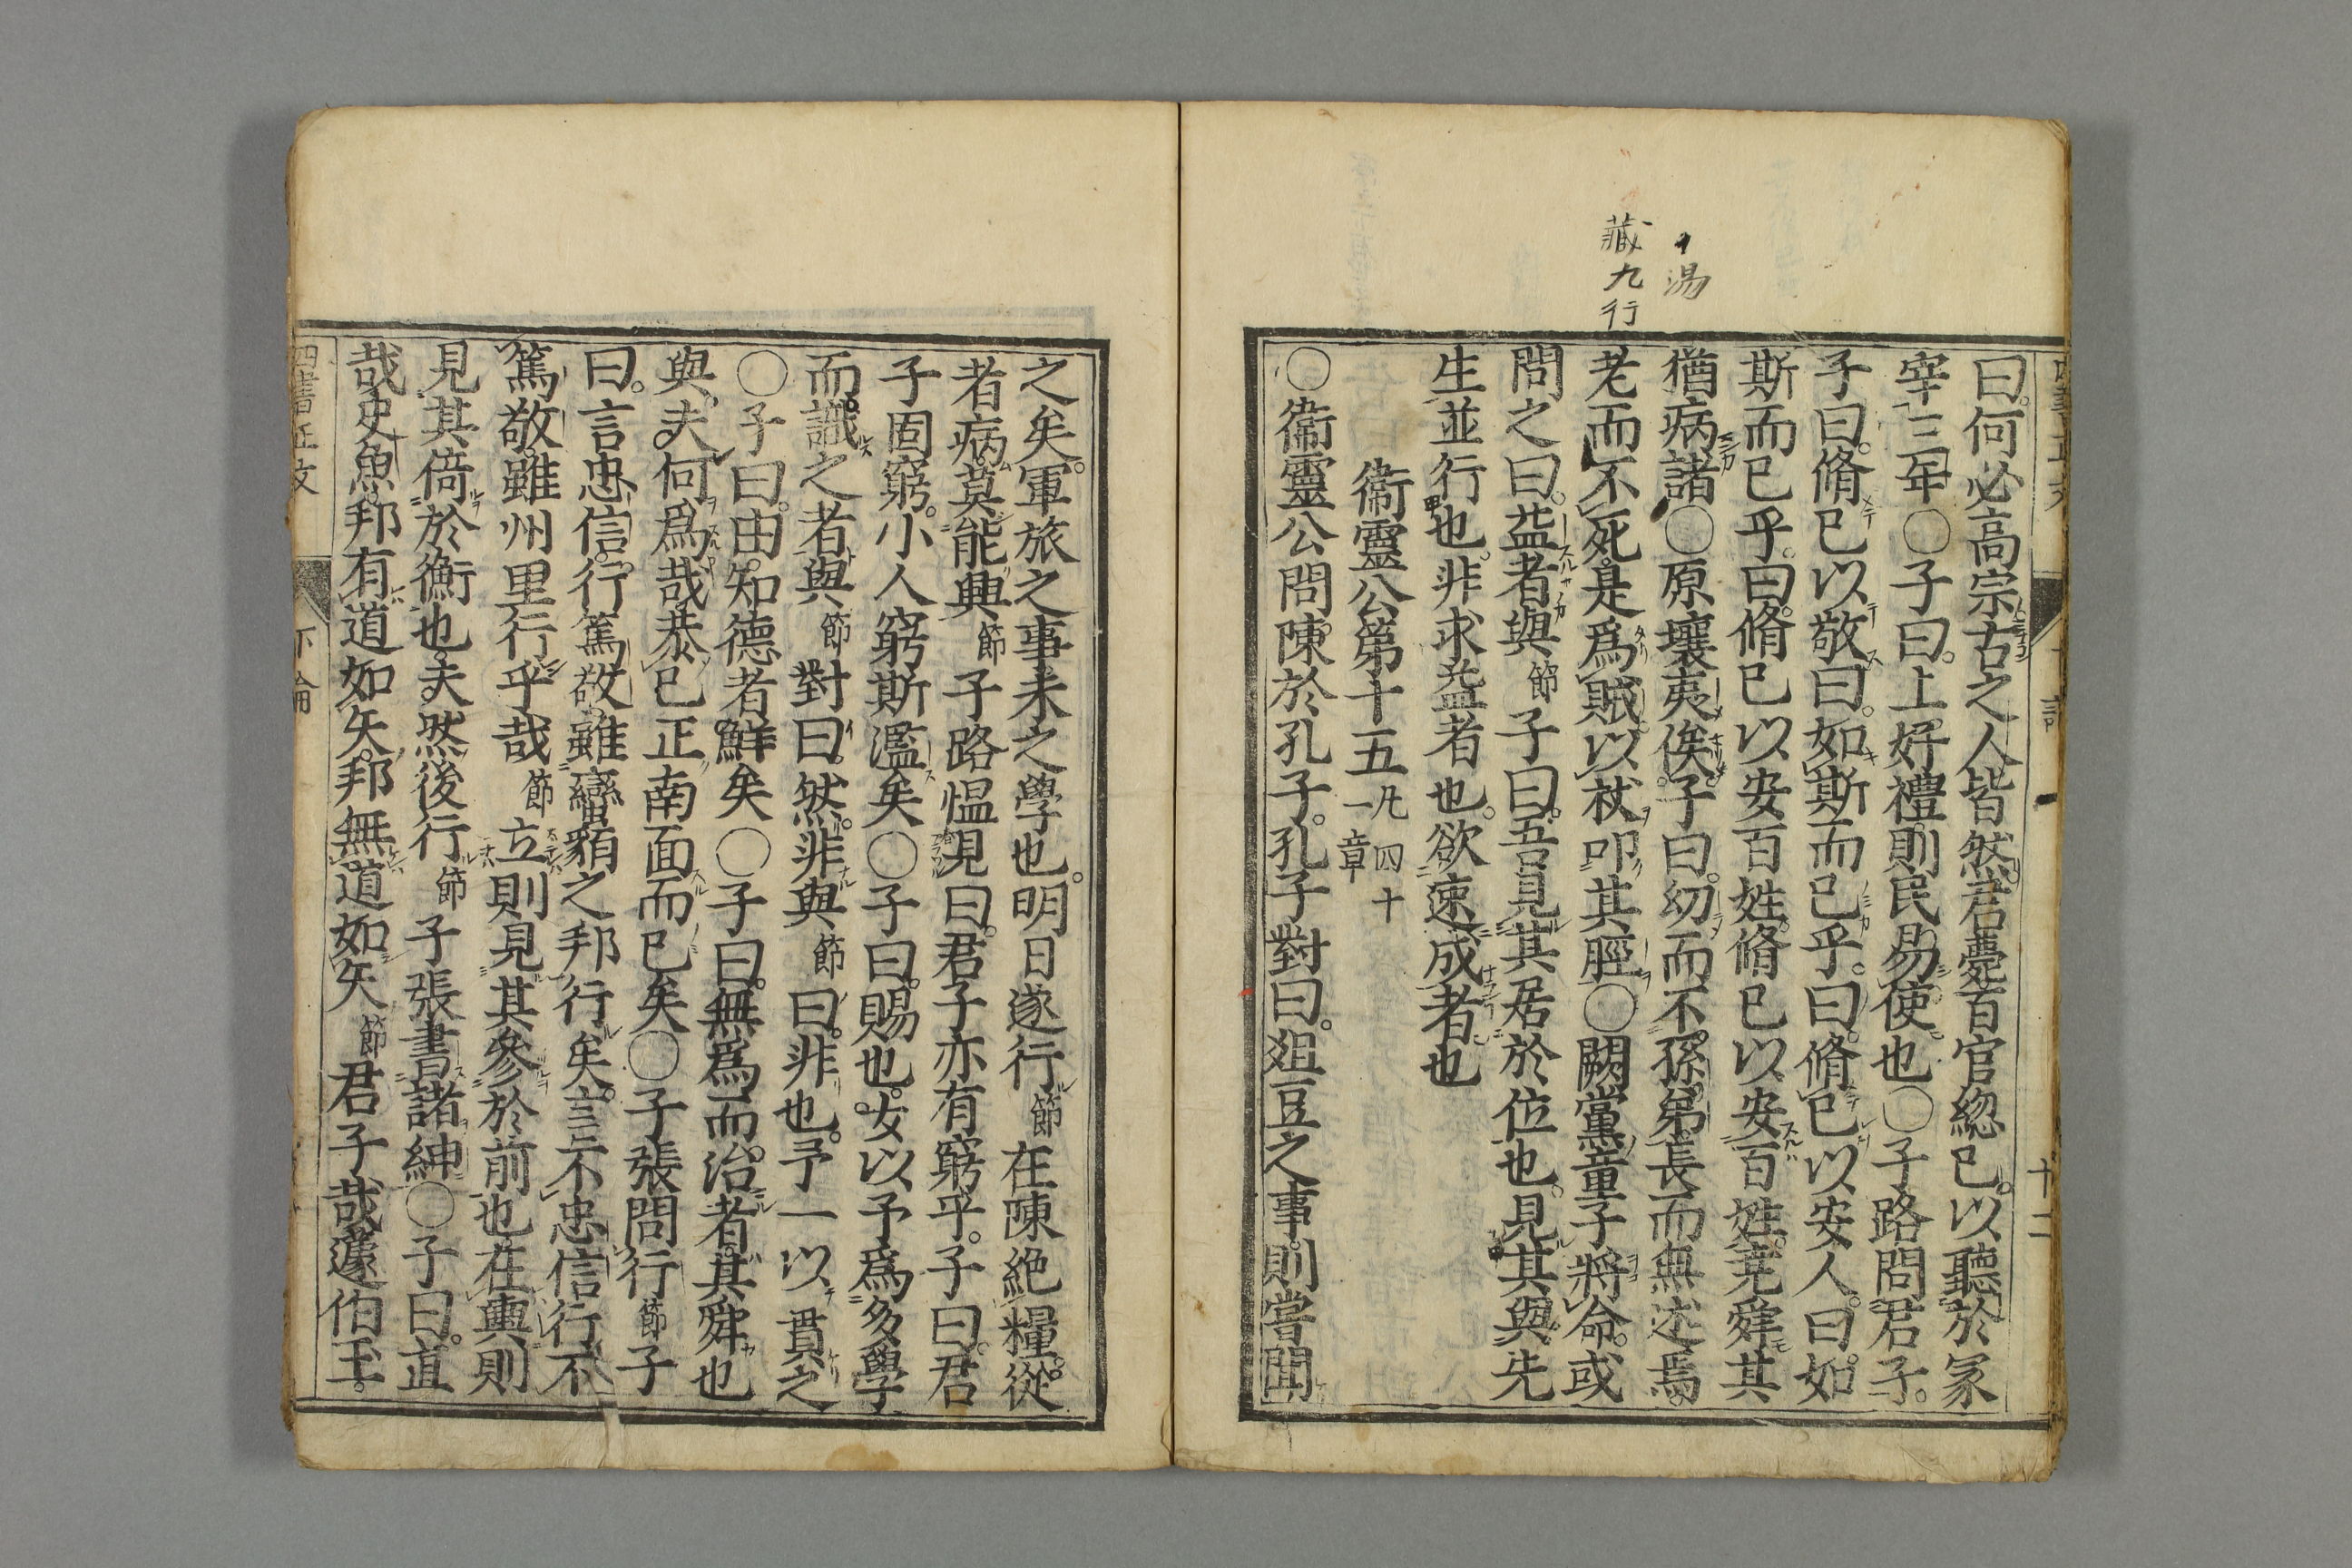 湯
藏九行
曰。何必高宗。古之人皆然。君薨。百官緫已。以聽於冢
宰三年○子曰。上好禮。則民易使也○子路問君子。
子曰。脩已以敬。曰。如斯而已乎。曰。脩已以安人。曰。如
斯而已乎。曰。脩已以安百姓。脩已以安百姓。堯舜其
猶病諸○原壤夷俟。子曰。幼而不孫弟。長而無述焉。
老而不死。是爲賊。以杖叩其脛○闕黨童子將命。或
問之曰。益者與節子曰。吾見其居於位也。見其與先
生並行也。非求益者也。欲速成者也
衞靈公第十五凡四十一章
○衞靈公問陳於孔子。孔子對曰。爼豆之事。則嘗聞
十二
之矣。軍旅之事。未之學也。明日遂行節在陳絶糧。從
者病。莫能興節子路愠見曰。君子亦有窮乎。子曰。君
子固窮。小人窮斯濫矣○子曰。賜也。女以予爲多學
而識之者與節對曰。然。非與節曰。非也。予一以貫之
○子曰。由。知德者鮮矣○子曰。無爲而治者。其舜也
與。夫何爲哉。恭已正南面而已矣○子張問行節子
曰。言忠信。行篤敬。雖蠻貊之邦行矣。言不忠信。行不
篤敬。雖州里行乎哉節立則見其參於前也。在輿則
見其倚於衡也。夫然後行節子張書諸紳○子曰。直
哉史魚。邦有道如矢。邦無道如矢節君子哉蘧伯玉。